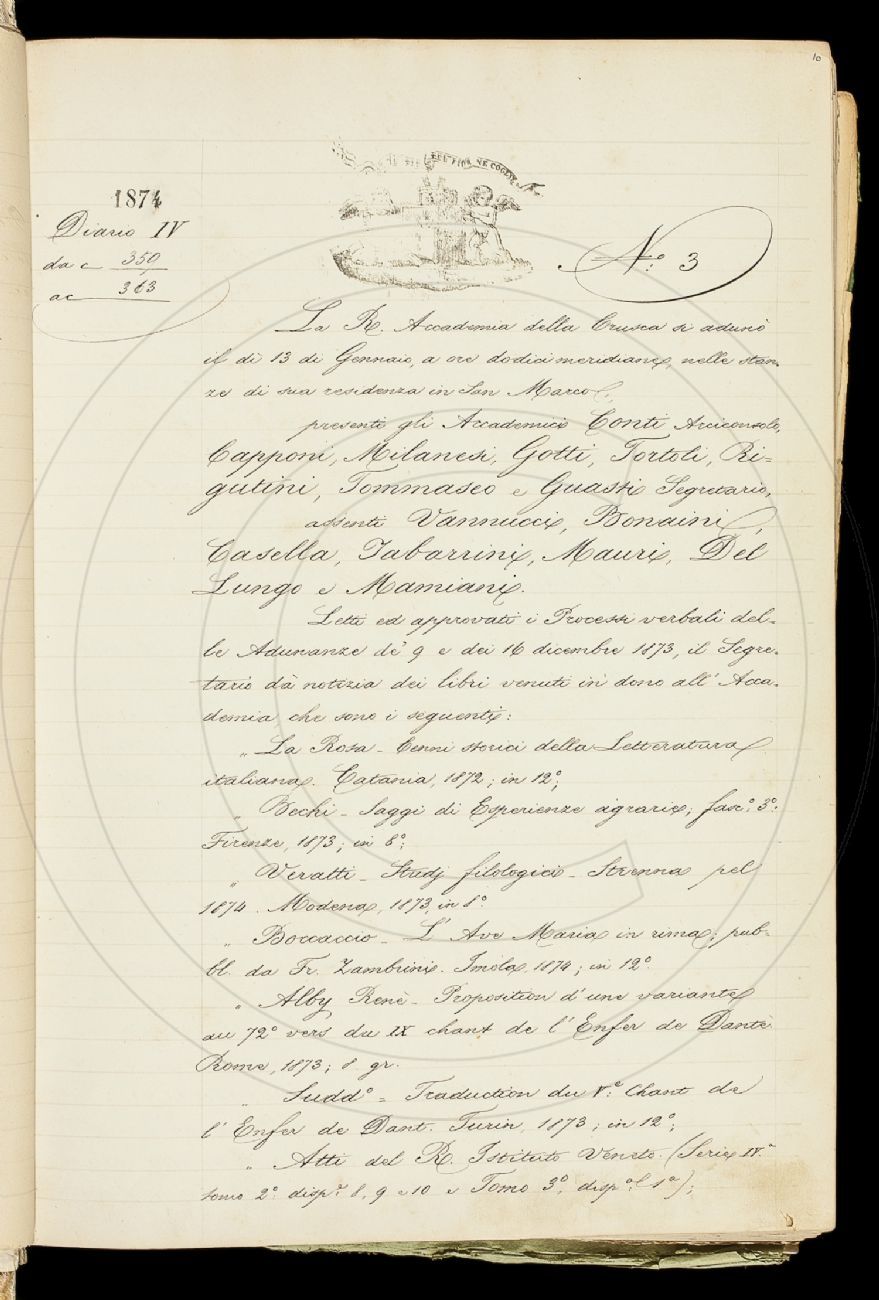 10
IL PIÙ BEL FIOR NE COGLIE
1874
Diario IV
da c 350
a c 363
N.º 3
La R. Accademia della Crusca si adunò
il dì 13 di Gennaio, a ore dodici meridiane, nelle stan-
ze di sua residenza in San Marco,
presenti gli Accademici Conti Arciconsolo,
Capponi, Milanesi, Gotti, Tortoli, Ri=
gutini, Tommaseo e Guasti Segretario,
assenti Vannucci, Bonaini,
Casella, Tabarrini, Mauri, Del
Lungo e Mamiani.
Letti ed approvati i Processi verbali del-
le Adunanze de' 9 e dei 16 dicembre 1873, il Segre-
tario dà notizia dei libri venuti in dono all' Acca-
demia, che sono i seguenti:
„ La Rosa - Cenni storici della Letteratura
italiana. Catania, 1872; in 12º;
„ Bechi - Saggi di Esperienze agrarie; fasc.º 3º:
Firenze, 1873; in 8º;
„ Veratti - Studj filologici - Strenna pel
1874. Modena, 1873, in 8º
„ Boccaccio - L' Ave Maria in rima; pub-
bl. da Fr. Zambrini. Imola, 1874; in 12º.
„ Alby Renè - Proposition d'une variante
au 72º vers du IX chant de l'Enfer de Dante
Rome, 1873; 8 gr.
„ Sudd.º - Traduction du V.e Chant de
l' Enfer de Dant. Turin, 1873; in 12º;
„ Atti del R. Istituto Veneto. (Serie IV.a
tomo 2º. disp.e 8, 9 e 10 e Tomo 3º, disp.a 1a);